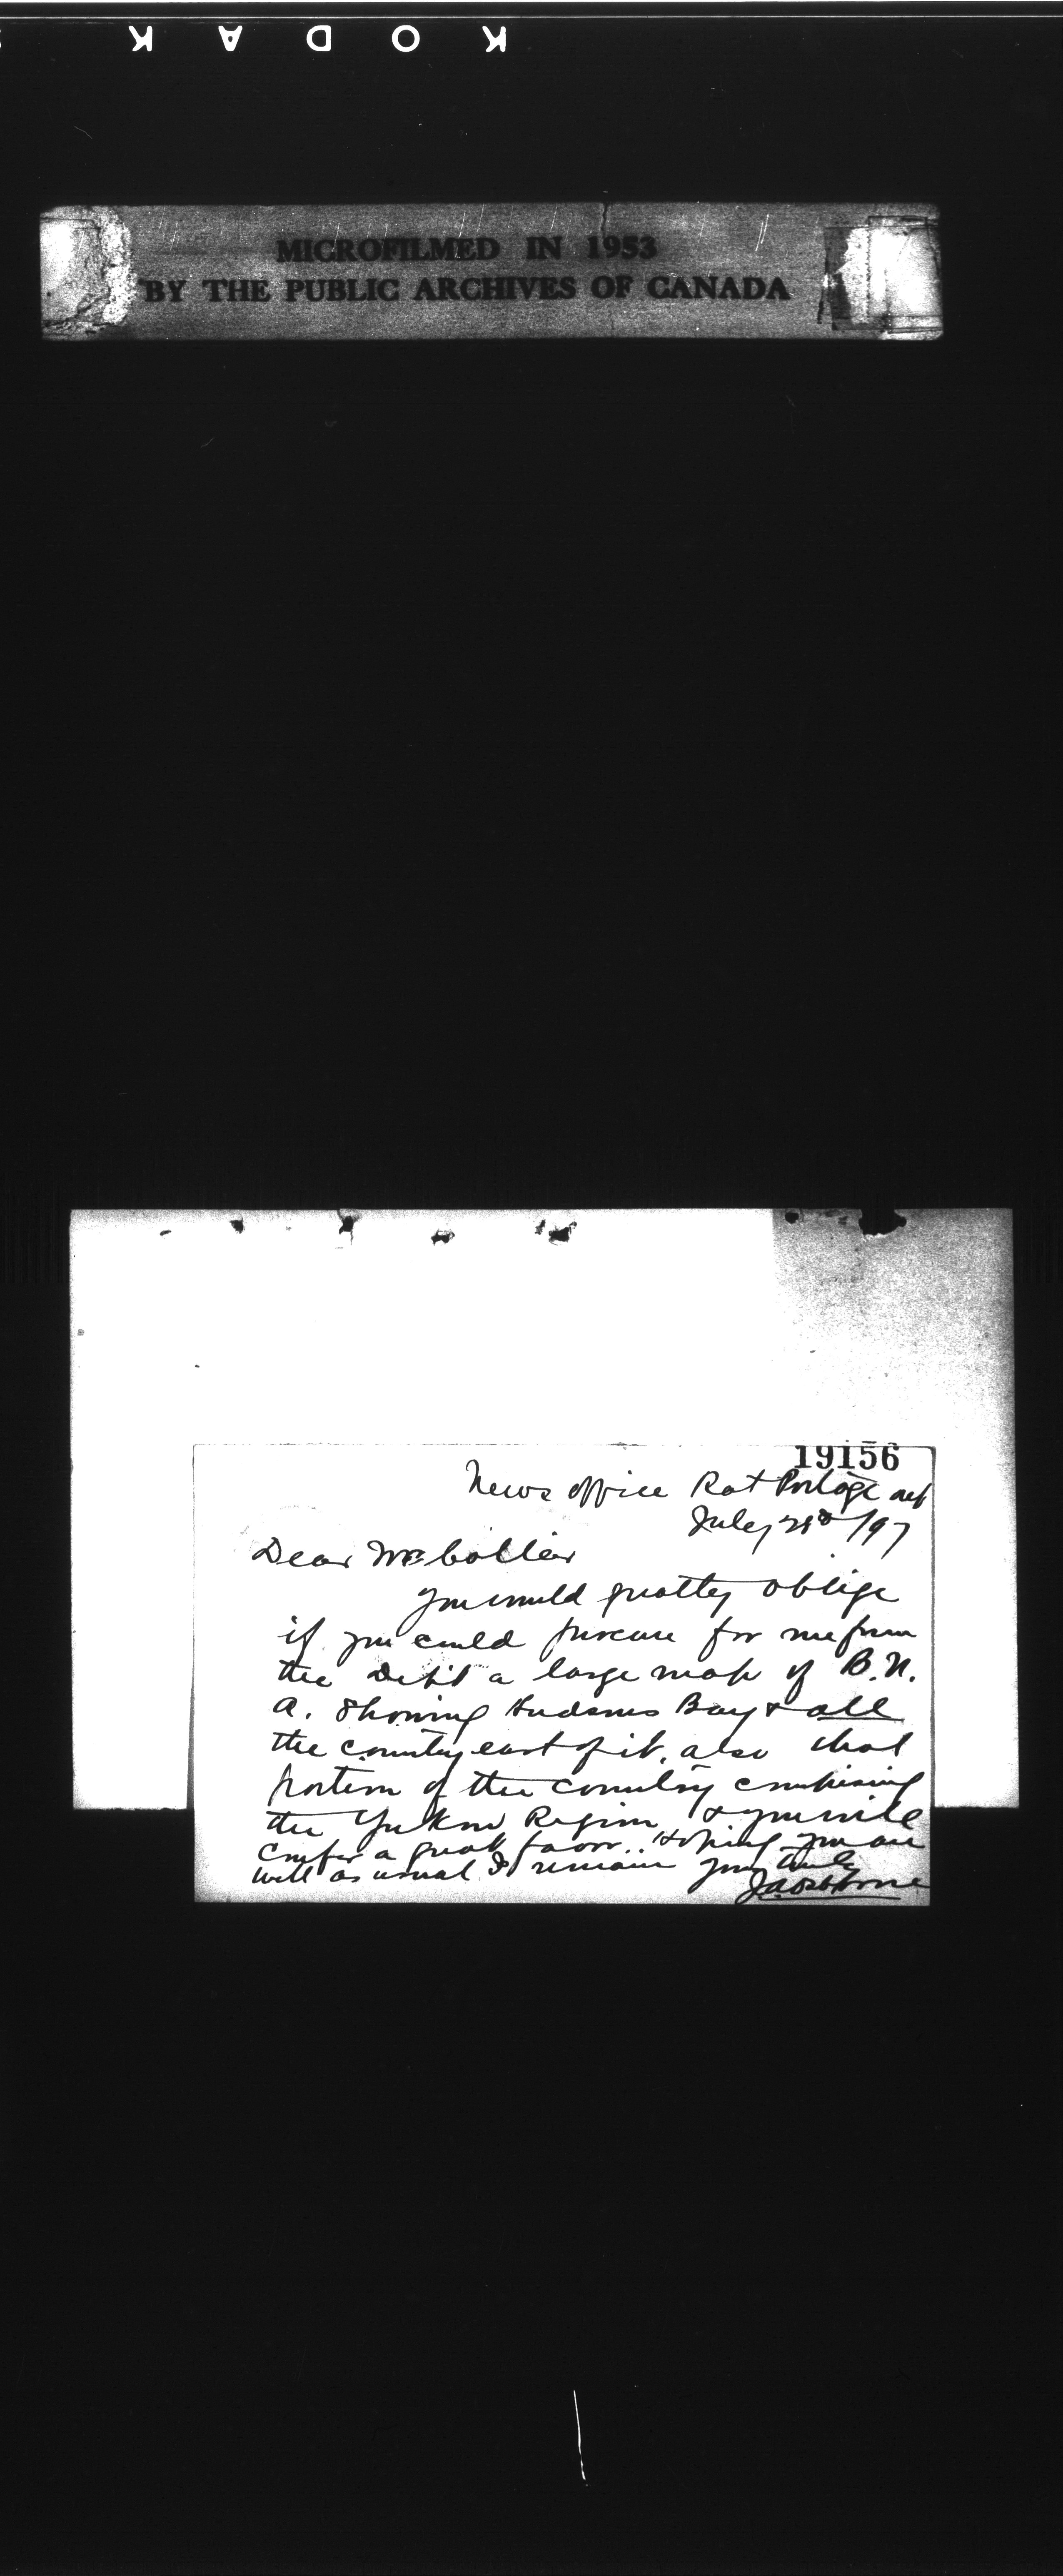 KODAK
MICROFILMED IN 1953
BY THE PUBLIC ARCHIVES OF CANADA
19156
News Office Rat Portage Ont
July 21st /97
Dear Mr Collier
You would greatly oblige
if you could procure for me from
the Dept a large map of B.N.
A. Showing Hudsons Bay & all
the country east of it, also that
portion of the country comprising
the Yukon Region & you will
confer a great favor.. Hoping you are
well as usual I remain Yours truly
J A Osborne